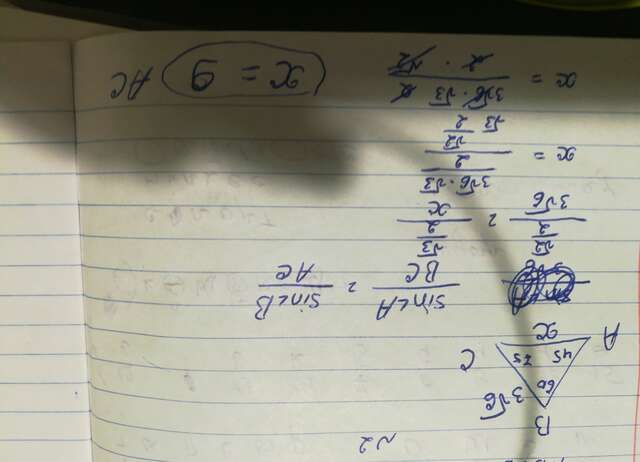 √2
B
60
3√6
45 75
A x C
sin∠A / BC = sin∠B / AC
√2/2 / 3√6 = √3/2 / x
x = 3√6 · √3/2 / √2/2
x = 3√6 · √3 · 2 / 2 · √2
x = 9 AC